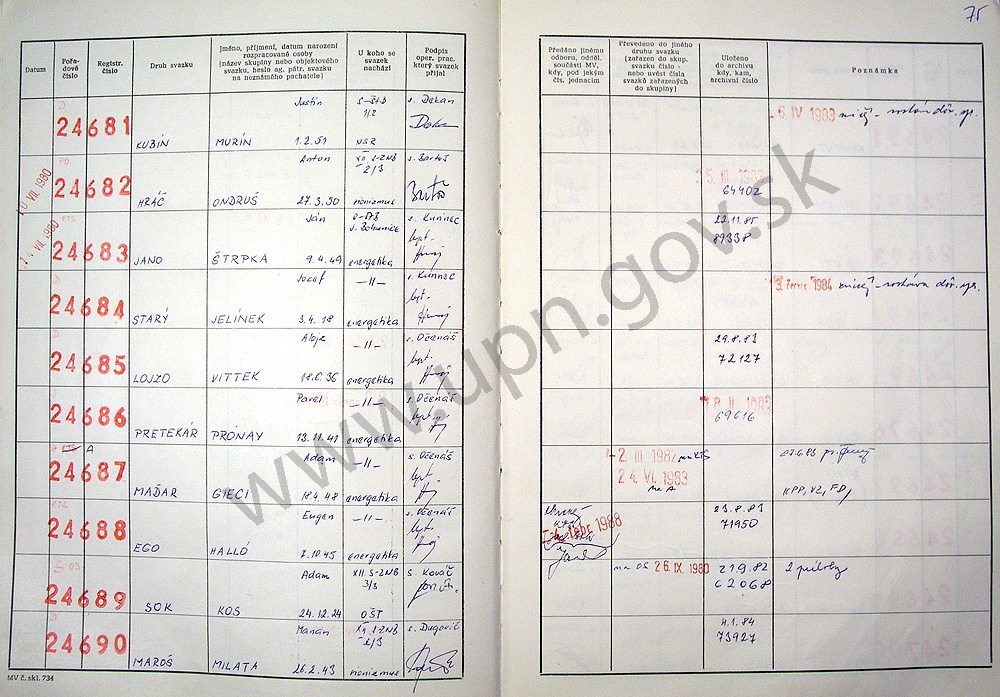 75
Datum
Pořadové číslo
Registr. číslo
Druh svazku
Jméno, příjmení, datum narození rozpracované osoby (název skupiny nebo objektového svazku, heslo ag. pátr. svazku na neznámého pachatele)
U koho se svazek nachází
Podpis oper. prac. který svazek přijal
Předáno jinému odboru, odděl. součásti MV, kdy, pod jakým čís. jednacím
Převedeno do jiného druhu svazku (zařazen do skup. svazku číslo - nebo uvést čísla svazků zařazených do skupiny)
Uloženo do archivu kdy, kam, archivní číslo
Poznámka
Justin
s. Dekan
24681
1/2
6 IV 1983
KUBÍN MURÍN 1.2.51 NSR
10 VII. 1980
Anton XII. S-ZNB s. Bartoš
24682
2/3
5. III. 1983
64402
HŔÁČ ONDRUŠ 27.3.50 sionizmus
VII. 1980
KTS
Ján
J. Bohunice
s. Kunnec
24683
22.11.85
89338
JANO ŠTRPKA 9.4.49 energetika
Jozef -11- s. Kunnec
24684
1984
STARÝ JELÍNEK 3.4.18 energetika
Alojz -11- s. Očenáš
24685
29.8.83
72127
LOJZO VITTEK 18.6.36 energetika
Pavel -11- s. Očenáš
24686
8. II. 1983
69616
PRETEKÁR PRÓNAY 13.11.41 energetika
A
Adam -11- s. Očenáš
24687
2. III 1982 na KTS
24. VI. 1983
na A
KPP, VZ, FD,
MAĎAR GIECI 18.4.48 energetika
KTS
Eugen -11- s. Očenáš
24688
1988
23.8.83
71950
EGO HALLÓ 7.10.45 energetika
OS
Adam XII. S-ZNB s. Kováč
24689
3/3
na OS 26. IX. 1980
21.9.82
62068
2 prílohy
SOK KOS 24.12.24 OŠT
Marián XII. S-ZNB s. Dugovič
24690
2/3
4.1.84
73927
MAROŠ MILATA 26.2.43 sionizmus
MV č. skl. 734
www.upn.gov.sk